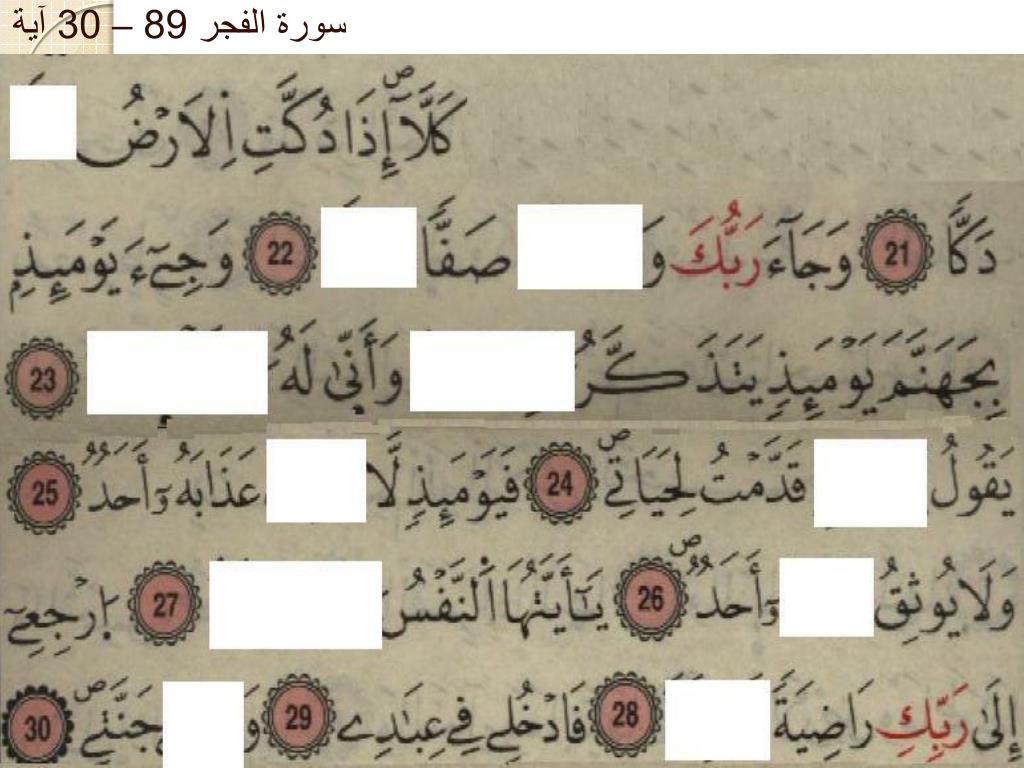 سورة الفجر 89 – 30 آية
كَلَّآ إِذَا دُكَّتِ اِ۬لَارْضُ
دَكّاٗ 21 وَجَآءَ رَبُّكَ وَ صَفّاٗ 22 وَجِےٓءَ يَوْمَئِذِۢ
بِجَهَنَّمَ يَوْمَئِذٖ يَتَذَكَّرُ وَأَنّ۪يٰ لَهُ 23
يَقُولُ قَدَّمْتُ لِحَيَاتِےۖ 24 فَيَوْمَئِذٖ لَّا عَذَابَهُۥٓ أَحَدٞ 25
وَلَا يُوثِقُ أَحَدٞۖ 26 يَٰٓأَيَّتُهَا اَ۬لنَّفْسُ 27 اُ۪رْجِعِےٓ
إِلَىٰ رَبِّكِ رَاضِيَةٗ 28 فَادْخُلِے فِے عِبَٰدِے 29 وَ جَنَّتِےۖ 30